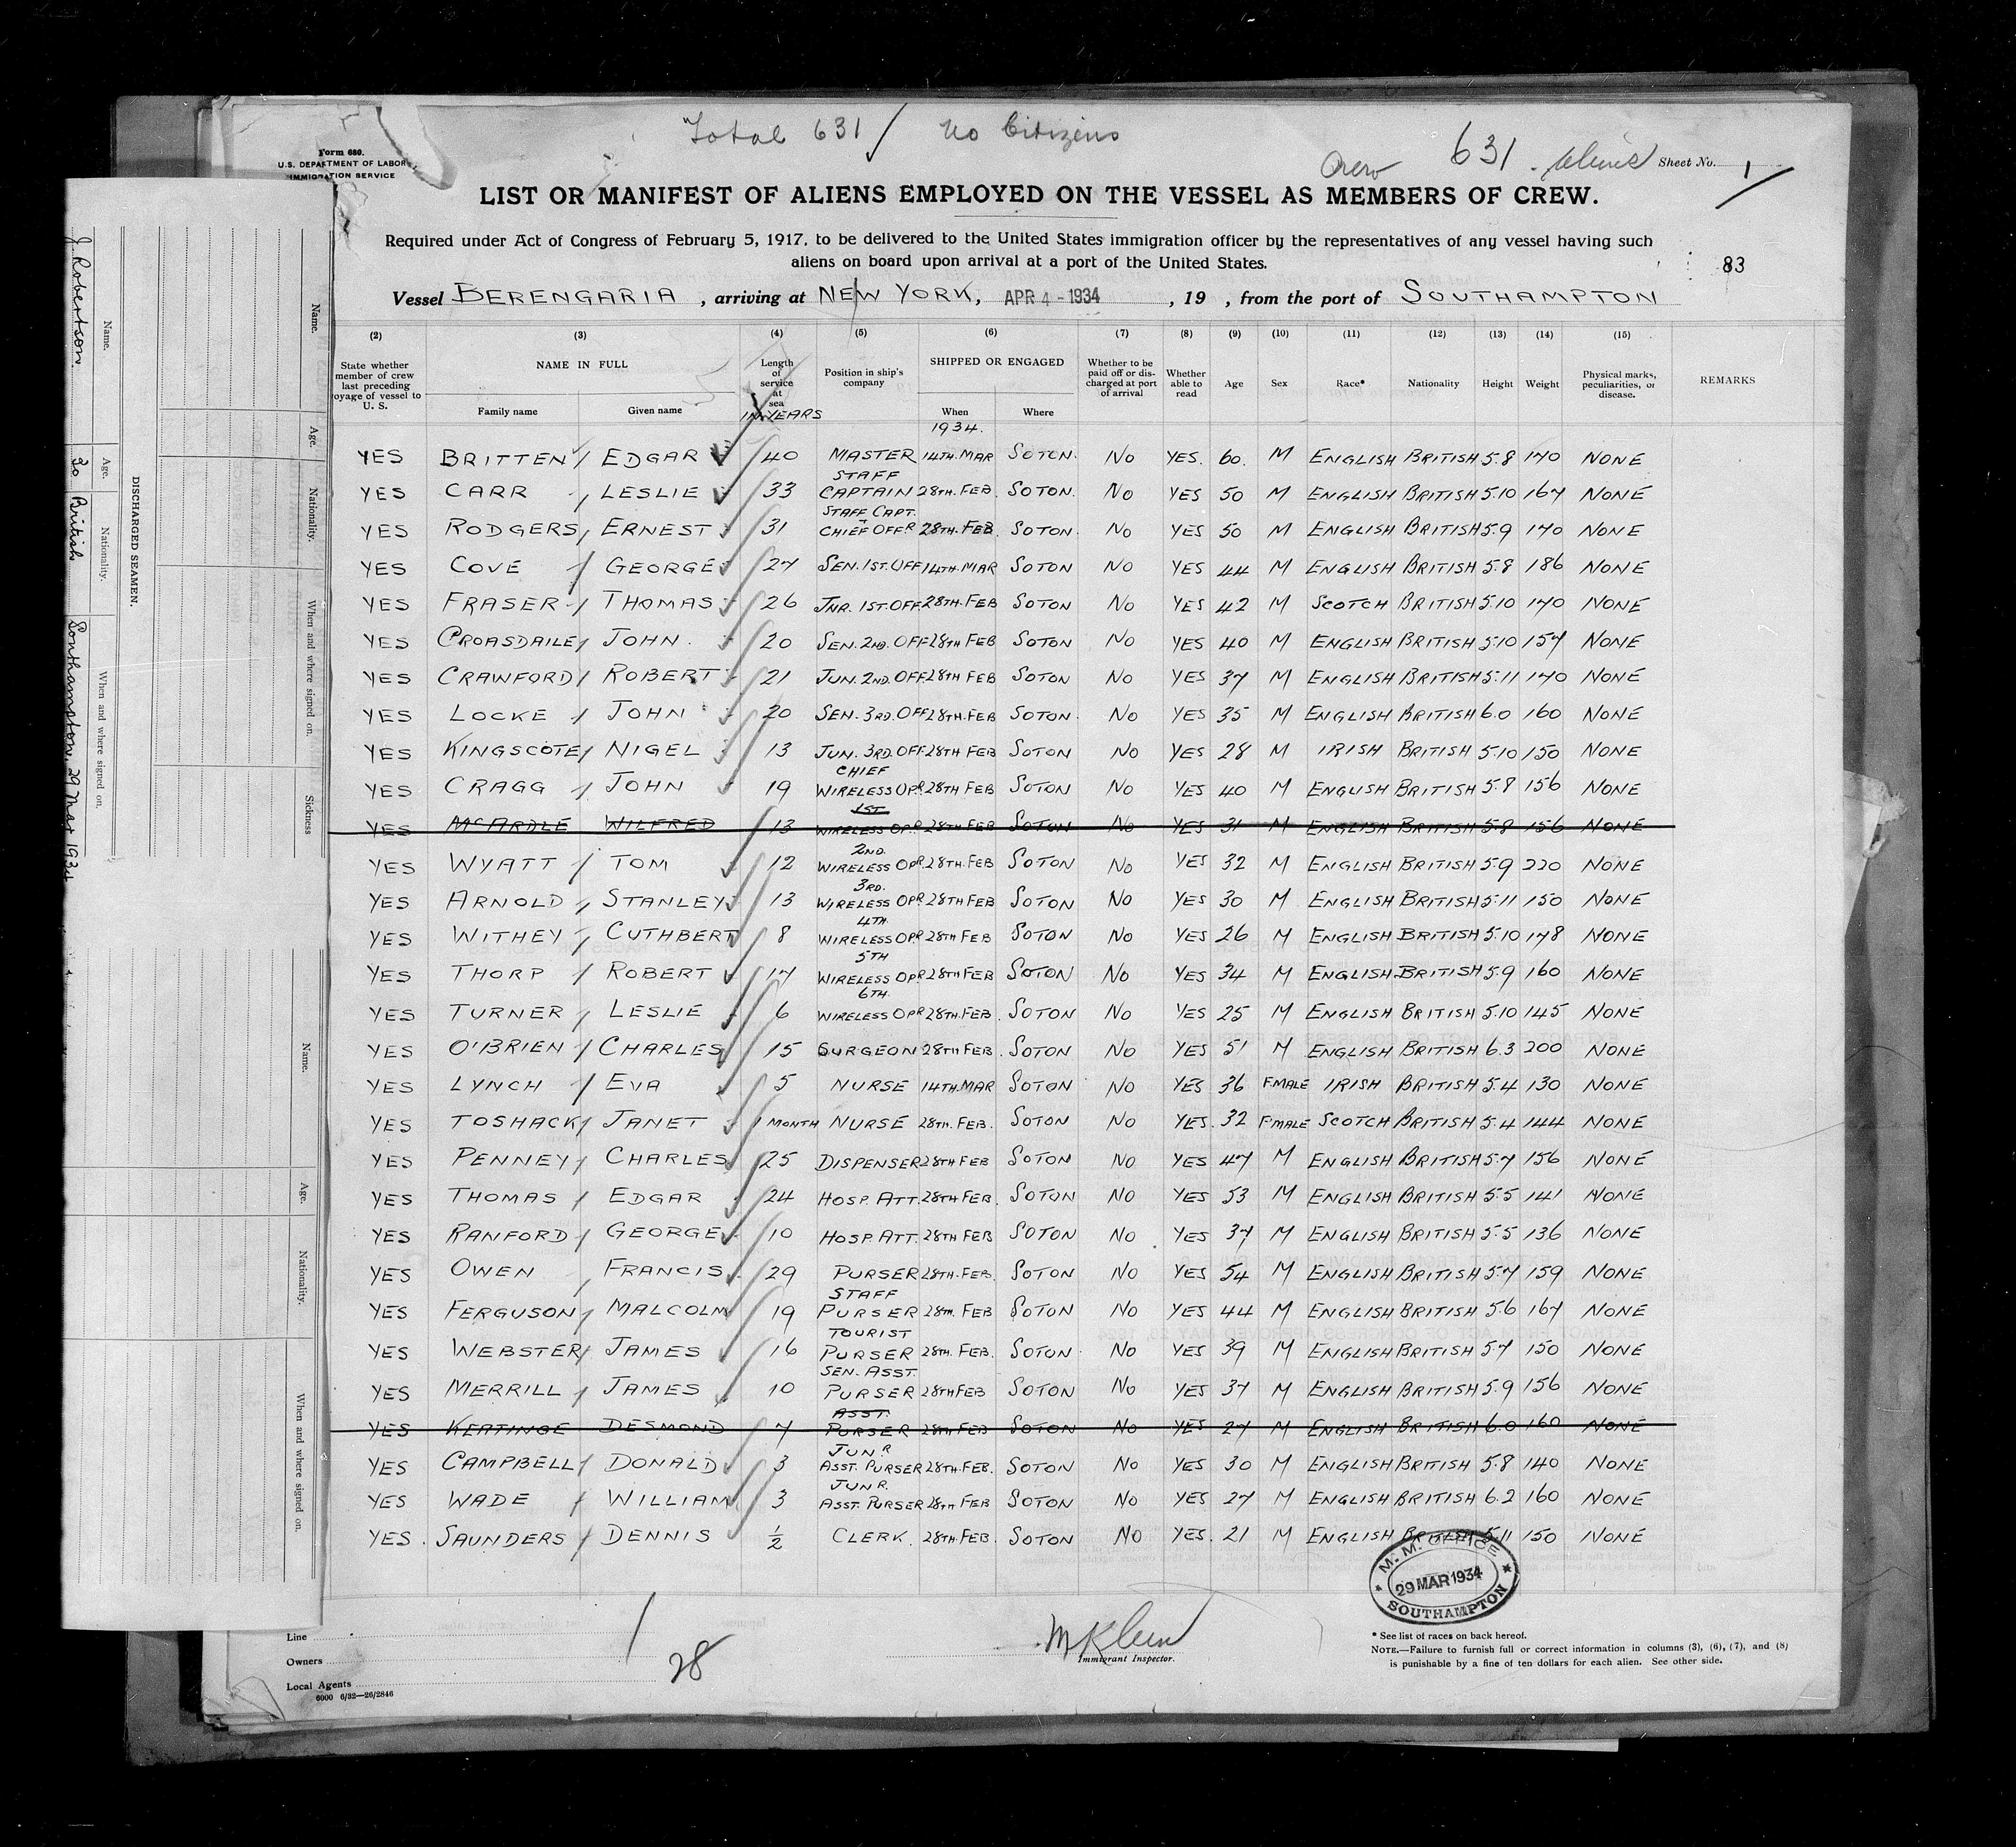 Total 631 / No Citizens
Crew 631 Aliens Sheet No. 1
Form 680.
U.S. DEPARTMENT OF LABOR
IMMIGRATION SERVICE
LIST OR MANIFEST OF ALIENS EMPLOYED ON THE VESSEL AS MEMBERS OF CREW.
Required under Act of Congress of February 5, 1917, to be delivered to the United States immigration officer by the representatives of any vessel having such
aliens on board upon arrival at a port of the United States.
83
Vessel BERENGARIA, arriving at NEW YORK, APR 4 - 1934, 19 , from the port of SOUTHAMPTON
(2) (3) (4) (5) (6) (7) (8) (9) (10) (11) (12) (13) (14) (15)
State whether member of crew last preceding voyage of vessel to U. S.
NAME IN FULL
Family name Given name
Length of service at sea
IN YEARS
Position in ship's company
SHIPPED OR ENGAGED
When Where
1934.
Whether to be paid off or discharged at port of arrival
Whether able to read
Age Sex Race* Nationality Height Weight
Physical marks, peculiarities, or disease.
REMARKS
YES BRITTEN / EDGAR 40 MASTER 14TH. MAR SOTON. NO YES. 60. M ENGLISH BRITISH 5.8 170 NONE
YES CARR / LESLIE 33 STAFF CAPTAIN 28TH. FEB. SOTON. NO YES 50 M ENGLISH BRITISH 5.10 167 NONE
YES RODGERS / ERNEST 31 STAFF CAPT. CHIEF OFFR 28TH. FEB. SOTON. NO YES 50 M ENGLISH BRITISH 5.9 170 NONE
YES COVE / GEORGE 27 SEN. 1ST. OFF 14TH. MAR SOTON NO YES 44 M ENGLISH BRITISH 5.8 186 NONE
YES FRASER / THOMAS 26 JNR. 1ST. OFF 28TH. FEB SOTON NO YES 42 M SCOTCH BRITISH 5.10 170 NONE
YES CROASDAILE / JOHN. 20 SEN. 2ND. OFF 28TH. FEB SOTON NO YES 40 M ENGLISH BRITISH 5.10 157 NONE
YES CRAWFORD / ROBERT 21 JUN. 2ND. OFF. 28TH FEB SOTON NO YES 37 M ENGLISH BRITISH 5.11 170 NONE
YES LOCKE / JOHN 20 SEN. 3RD. OFF 28TH. FEB SOTON NO YES 35 M ENGLISH BRITISH 6.0 160 NONE
YES KINGSCOTE / NIGEL 13 JUN. 3RD. OFF. 28TH FEB SOTON NO YES 28 M IRISH BRITISH 5.10 150 NONE
YES CRAGG / JOHN 19 CHIEF WIRELESS OPR 28TH FEB SOTON NO YES 40 M ENGLISH BRITISH 5.8 156 NONE
YES MCARDLE WILFRED 13 1ST WIRELESS OPR 28TH FEB SOTON NO YES 31 M ENGLISH BRITISH 5.8 156 NONE
YES WYATT / TOM 12 2ND. WIRELESS OPR. 28TH. FEB SOTON NO YES 32 M ENGLISH BRITISH 5.9 220 NONE
YES ARNOLD / STANLEY 13 3RD. WIRELESS OPR 28TH FEB SOTON NO YES 30 M ENGLISH BRITISH 5.11 150 NONE
YES WITHEY / CUTHBERT 8 4TH WIRELESS OPR 28TH FEB SOTON NO YES 26 M ENGLISH BRITISH 5.10 178 NONE
YES THORP / ROBERT 17 5TH WIRELESS OPR 28TH FEB SOTON NO YES 34 M ENGLISH BRITISH 5.9 160 NONE
YES TURNER / LESLIE 6 6TH. WIRELESS OPR 28TH. FEB. SOTON NO YES 25 M ENGLISH BRITISH 5.10 145 NONE
YES O'BRIEN / CHARLES 15 SURGEON 28TH FEB. SOTON NO YES 51 M ENGLISH BRITISH 6.3 200 NONE
YES LYNCH / EVA 5 NURSE 14TH. MAR SOTON NO YES 36 FMALE IRISH BRITISH 5.4 130 NONE
YES TOSHACK / JANET 1 MONTH NURSE 28TH. FEB. SOTON NO YES. 32 FMALE SCOTCH BRITISH 5.4 144 NONE
YES PENNEY / CHARLES 25 DISPENSER 28TH FEB SOTON NO YES 47 M ENGLISH BRITISH 5.7 156 NONE
YES THOMAS / EDGAR 24 HOSP. ATT. 28TH FEB. SOTON NO YES 53 M ENGLISH BRITISH 5.5 141 NONE
YES RANFORD / GEORGE 10 HOSP. ATT. 28TH FEB SOTON NO YES 37 M ENGLISH BRITISH 5.5 136 NONE
YES OWEN / FRANCIS 29 PURSER 28TH. FEB. SOTON NO YES 54 M ENGLISH BRITISH 5.7 159 NONE
YES FERGUSON / MALCOLM 19 STAFF PURSER 28TH. FEB SOTON NO YES 44 M ENGLISH BRITISH 5.6 167 NONE
YES WEBSTER / JAMES 16 TOURIST PURSER 28TH. FEB. SOTON NO YES 39 M ENGLISH BRITISH 5.7 150 NONE
YES MERRILL / JAMES 10 SEN. ASST. PURSER 28TH FEB SOTON NO YES 37 M ENGLISH BRITISH 5.9 156 NONE
YES KEATINGE DESMOND 7 ASST. PURSER 28TH FEB SOTON NO YES 27 M ENGLISH BRITISH 6.0 160 NONE
YES CAMPBELL / DONALD 3 JUNR ASST. PURSER 28TH. FEB. SOTON NO YES 30 M ENGLISH BRITISH 5.8 140 NONE
YES WADE / WILLIAM 3 JUNR. ASST. PURSER 28TH FEB SOTON NO YES 27 M ENGLISH BRITISH 6.2 160 NONE
YES. SAUNDERS / DENNIS 1/2 CLERK. 28TH. FEB. SOTON NO YES. 21 M ENGLISH BRITISH 5.11 150 NONE
M. M. OFFICE
29 MAR 1934
SOUTHAMPTON
Line
Owners
Local Agents
6000 6/32—26/2846
28
M Klein
Immigrant Inspector.
* See list of races on back hereof.
NOTE.—Failure to furnish full or correct information in columns (3), (6), (7), and (8)
is punishable by a fine of ten dollars for each alien. See other side.
DISCHARGED SEAMEN.
Name. Age. Nationality. When and where signed on.
J. Robertson. 20 British Southampton, 29 Mar 1934
Name. Age. Nationality. When and where signed on. Sickness
Name. Age. Nationality. When and where signed on.